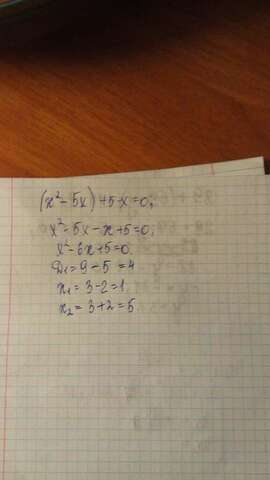 (x²-5x)+5-x=0;
x²-5x-x+5=0;
x²-6x+5=0.
D₁=9-5=4
x₁=3-2=1
x₂=3+2=5.